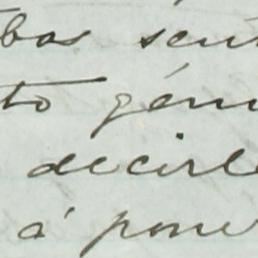 bas sen
to gén
decirl
á pone